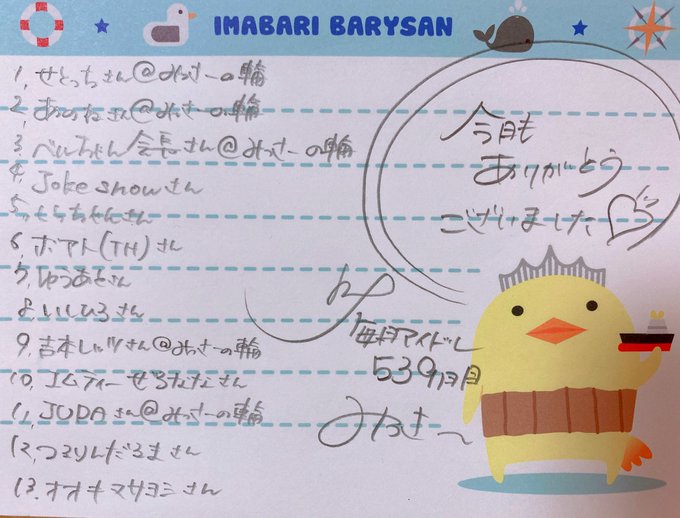 IMABARI BARYSAN
1, せとっちさん@みっさーの輪
2, あっのねさん@みっさーの輪
3, べルちゃん会長さん@みっさーの輪
4, Joke snowさん
5, そらちゃんさん
6, ボアト(TH)さん
7, ゆうあとさん
8, いしひろさん
9, 吉本レッツさん@みっさーの輪
10, エムティーせるななさん
11, JUDAさん@みっさーの輪
12, つるりんだるまさん
13, オオキマサヨミさん
今月も
ありがとう
ございました
毎月アイドル
539ヶ月目
みっさー